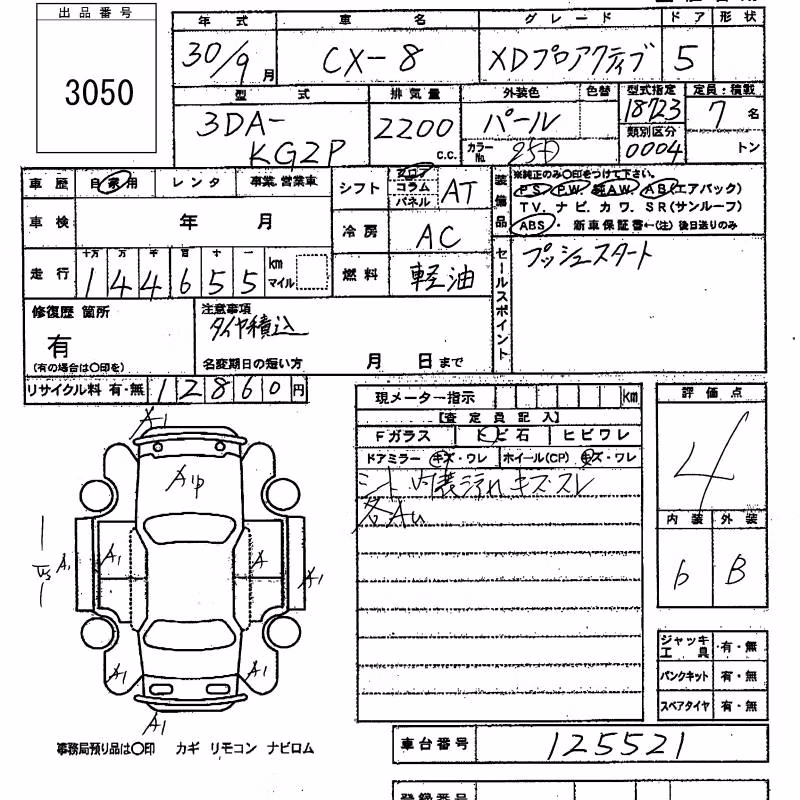 出品番号
3050
年式 車名 グレード ドア 形状
30/9月 CX-8 XDプロアクティブ 5
型式 排気量 外装色 色替 型式指定 定員・積載
3DA-KG2P 2200 C.C. パール 18723 7名
カラーNo. 25D 類別区分 0004 トン
車歴 自家用 レンタ 事業.営業車
シフト フロア コラム パネル AT
装備品 ※純正のみ〇印をつけて下さい。
PS PW 純AW. AB(エアバック)
TV. ナビ. カワ. SR(サンルーフ)
ABS・ 新車保証書←(注) 後日送りのみ
車検 年 月
冷房 AC
走行 十万 万 千 百 十 一
144655 km マイル
燃料 軽油
セールスポイント プッシュスタート
修復歴 箇所
有
(有の場合は〇印を)
注意事項
タイヤ積込
名変期日の短い方 月 日まで
リサイクル料 有・無 12860円
現メーター指示 km
【査定員記入】
Fガラス トビ石 ヒビワレ
ドアミラー キズ・ワレ ホイール(CP) キズ・ワレ
シート 内装汚れ キズ・スレ
各AU
評価点
4
内装 外装
b B
A1
A1P
A1 A1 A A1
A1 A1
A1
ジャッキ工具 有・無
パンクキット 有・無
スペアタイヤ 有・無
事務局預り品は〇印 カギ リモコン ナビロム
車台番号 125521
登録番号